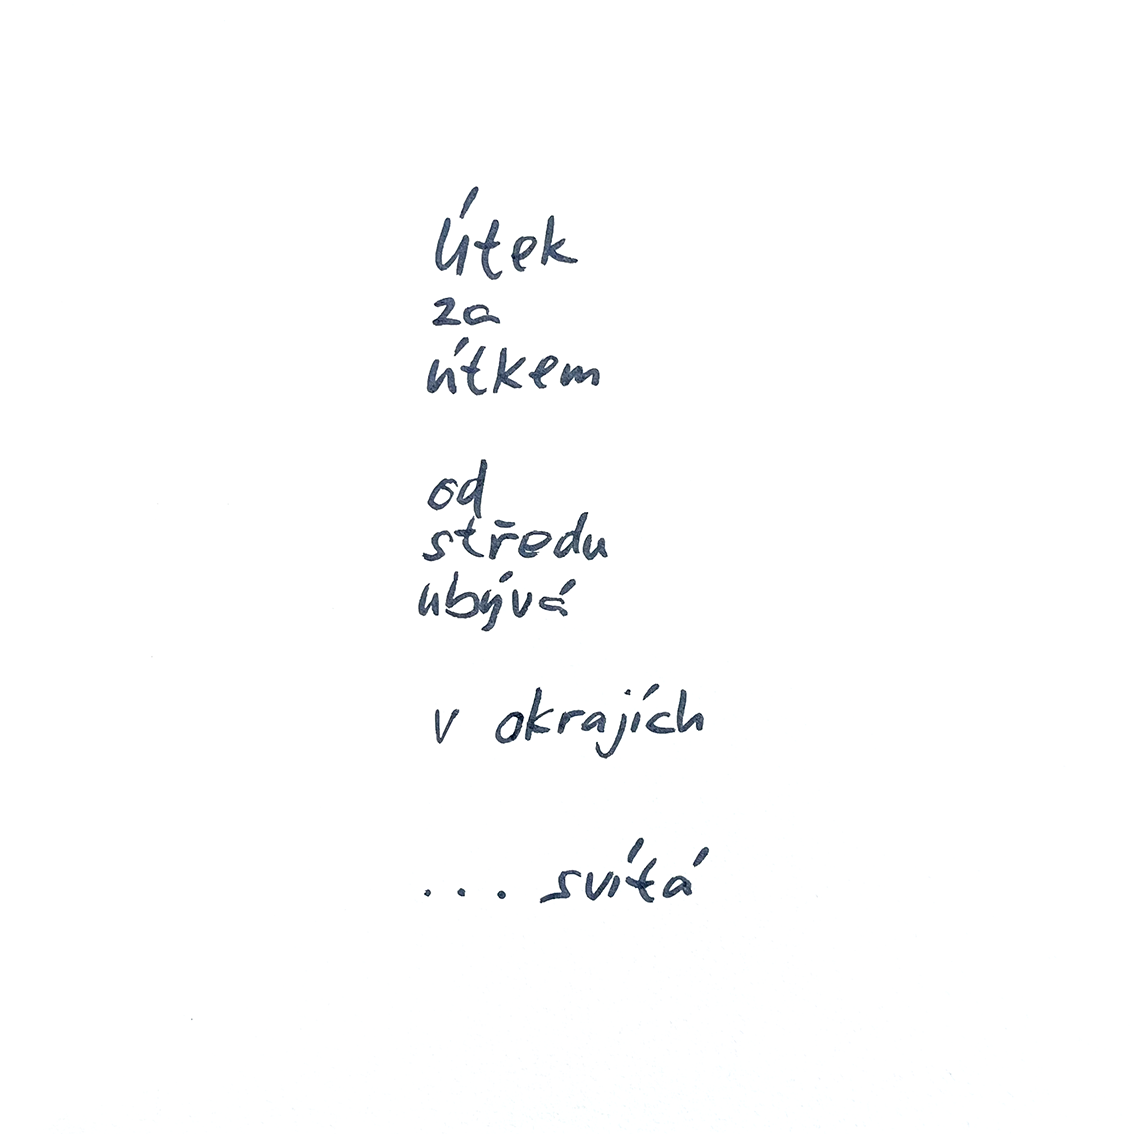 Útek
za
útkem
od
středu
ubývá
v okrajích
... svítá